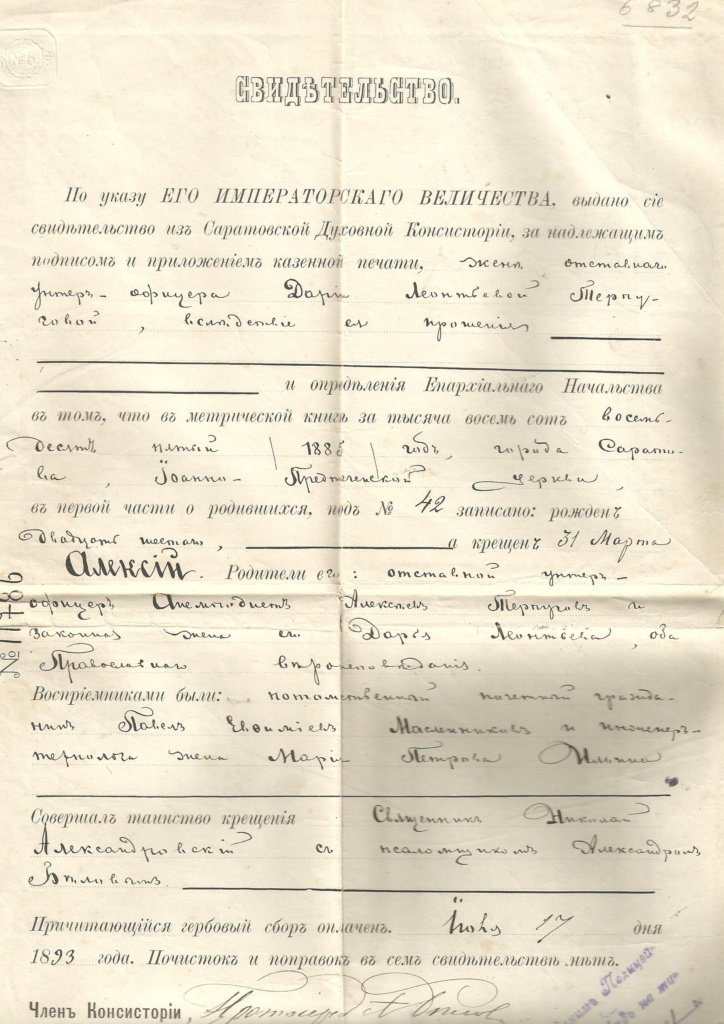 6832
СВИДѢТЕЛЬСТВО.
По указу ЕГО ИМПЕРАТОРСКАГО ВЕЛИЧЕСТВА, выдано сіе
свидѣтельство изъ Саратовской Духовной Консисторіи, за надлежащимъ
подписомъ и приложеніемъ казенной печати, женѣ отставнаго
унтеръ-офицера Даріи Леонтьевой Терпу-
говой, вслѣдствіе ея прошенія
и опредѣленія Епархіальнаго Начальства
въ томъ, что въ метрической книгѣ за тысяча восемь сотъ восемь-
десятъ пятый /1885/ годъ, города Сарато-
ва, Іоанно-Предтеченской церкви,
въ первой части о родившихся, подъ № 42 записано: рожденъ
двадцать шестаго, а крещенъ 31 Марта
Алексій. Родители его: отставной унтеръ-
офицеръ Анемподистъ Алексѣевъ Терпуговъ и
законная жена его Дарья Леонтьева, оба
Православнаго вѣроисповѣданія.
Воспріемниками были: потомственный почетный гражда-
нинъ Павелъ Евфиміевъ Масленниковъ и инженеръ-
технолога жена Марія Петрова Ильина
Совершалъ таинство крещенія Священникъ Николай
Александровскій съ псаломщикомъ Александромъ
Бѣловымъ.
Причитающійся гербовый сборъ оплаченъ. 17 дня
1893 года. Почистокъ и поправокъ въ семъ свидѣтельствѣ нѣтъ.
Членъ Консисторіи, Протоіерей
№ 11786